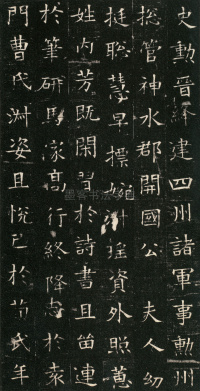 史勳晉絳建四州諸軍事勳州
總管神水郡開國公 夫人幼
挺聡慧早摽 淑 瑤資外照蕙
姓内芳既閑習於詩書且留連
於筆研馬家高行終降志於袁
門曹氏淑姿且悅己於荀氏年